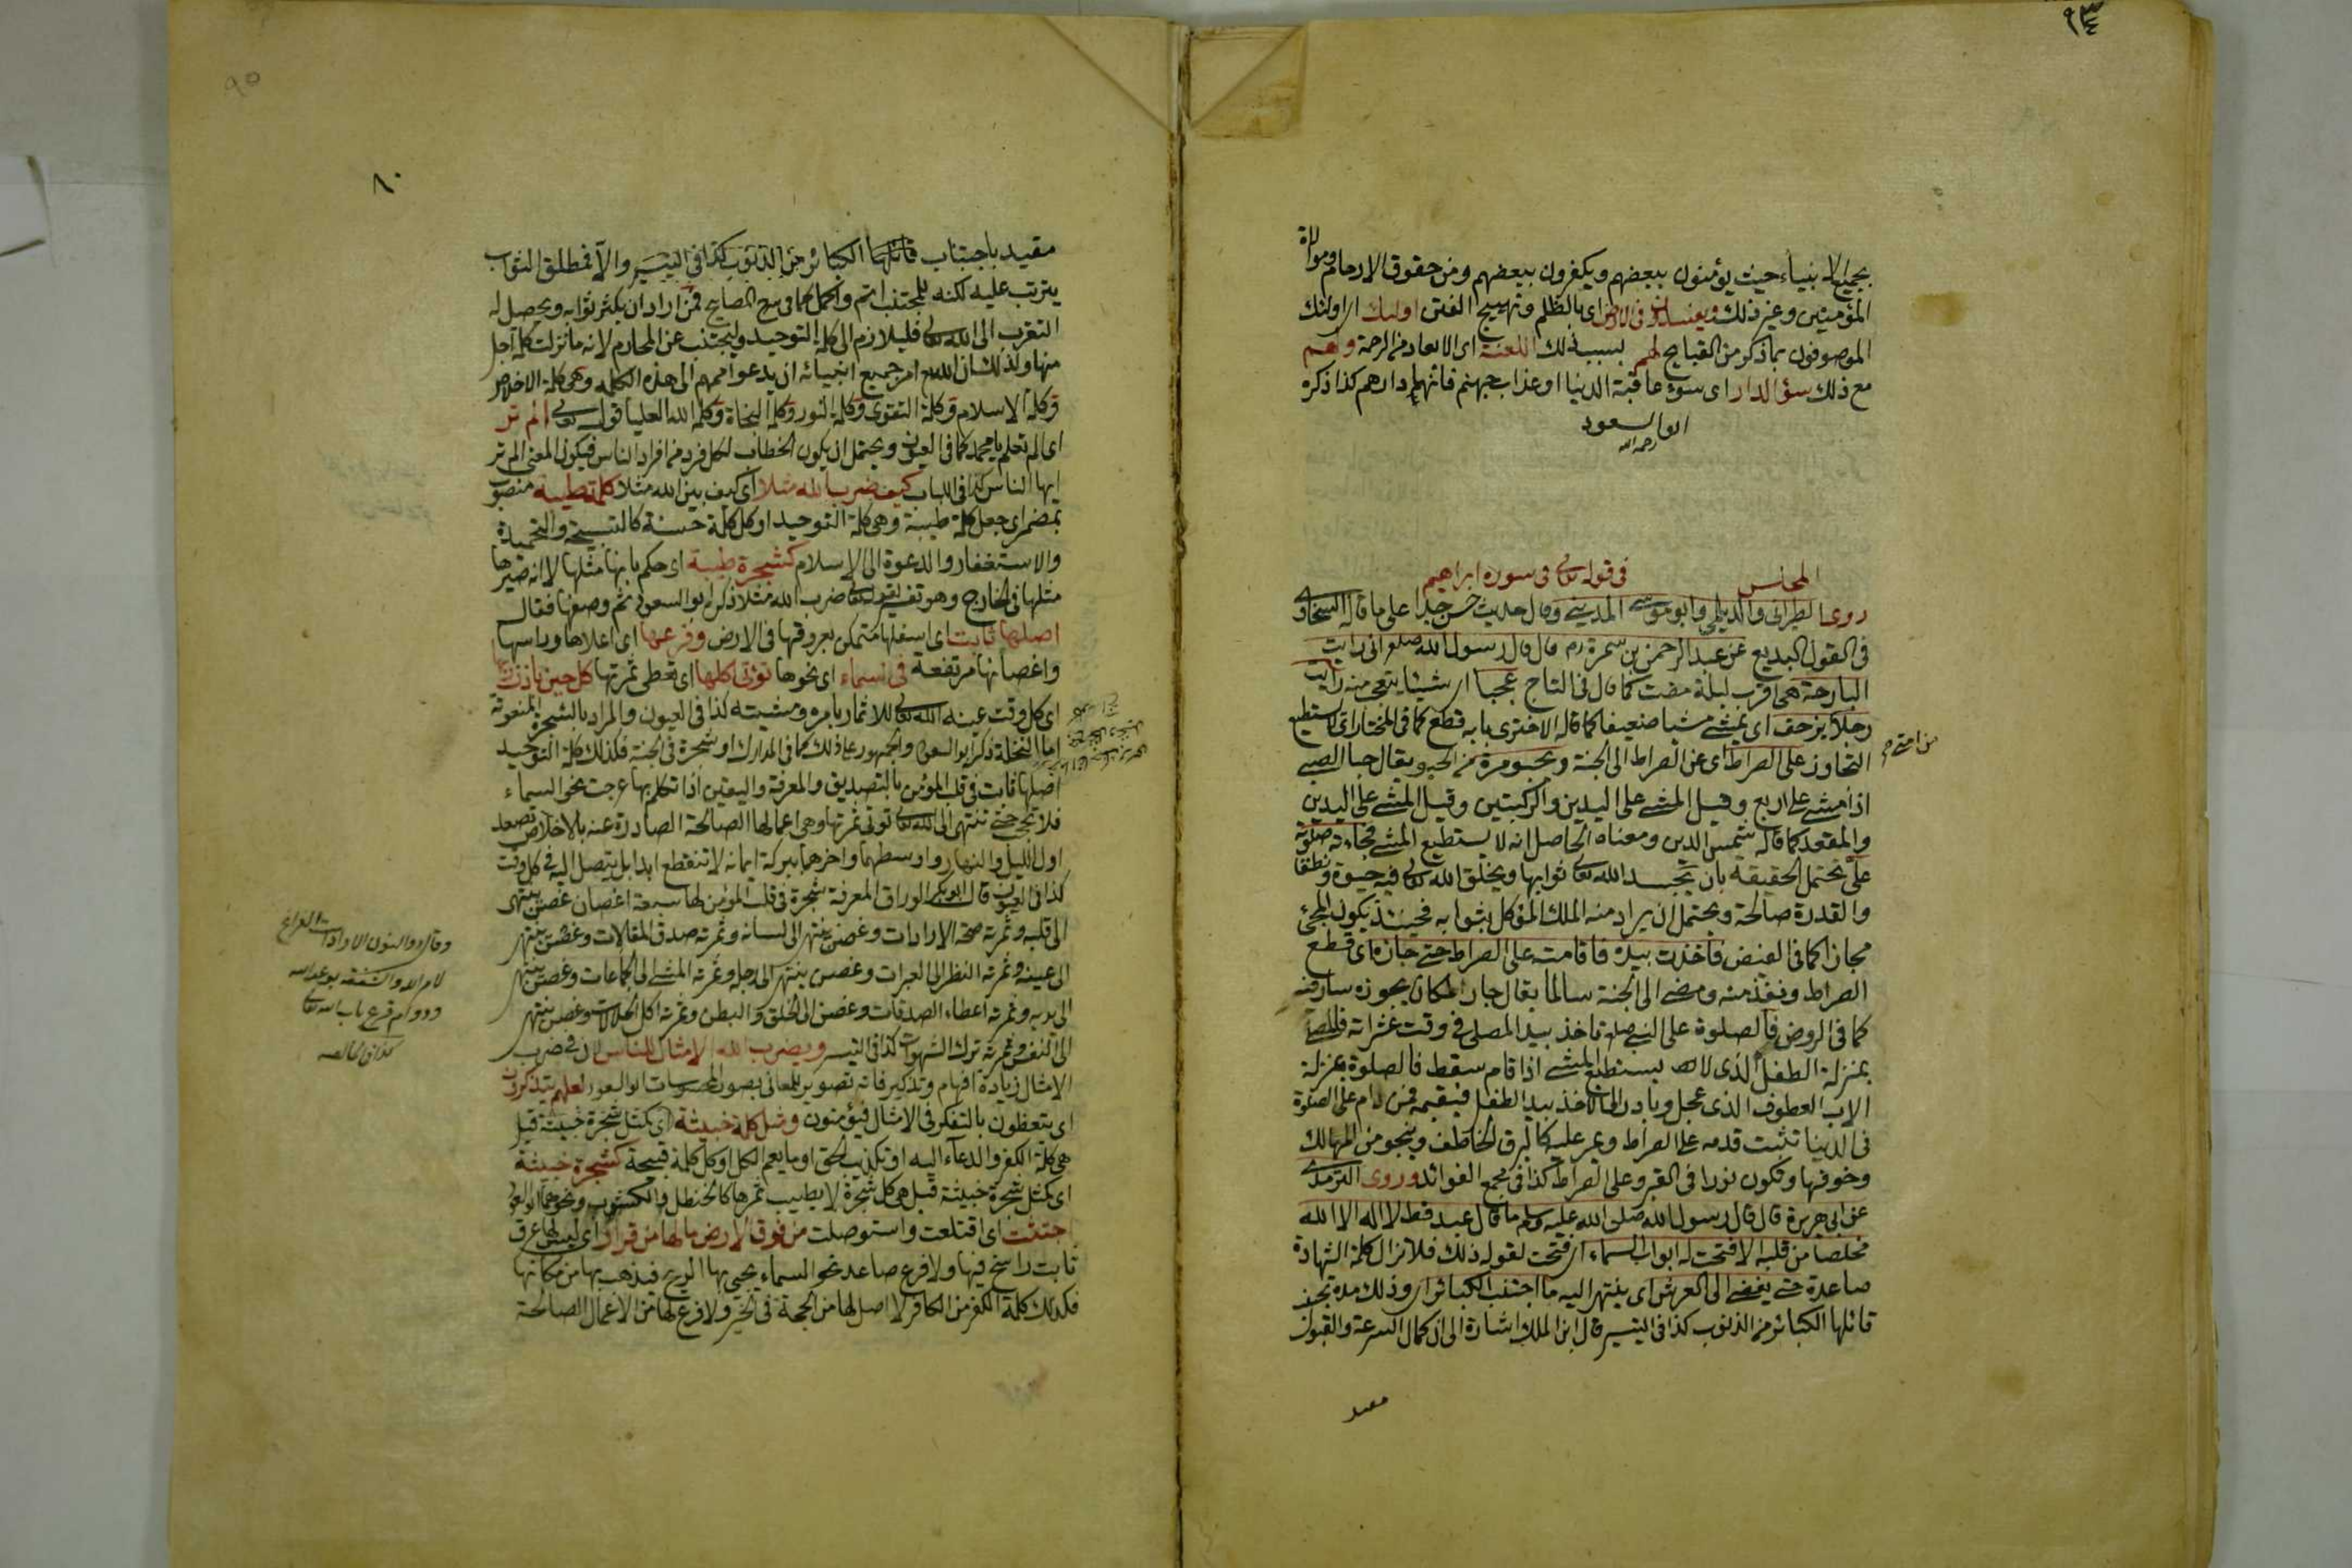 ٩٣
بجميع الانبياء حيث يؤمنون ببعضهم ويكفرون ببعضهم ومن حقوق الارحام وموالاة
المؤمنين وغير ذلك ويفسدون فى الارض اى بالظلم وتهييج الفتن اولئك اى اولئك
الموصوفون بما ذكر من القبايح لهم بسبب ذلك اللعنة اى الابعاد من الرحمة ولهم
مع ذلك سؤ الدار اى سوء عاقبة الدنيا او عذاب جهنم فانها دارهم كذا ذكره
ابو السعود
رحمه الله
المجلس فى قوله تعالى فى سورة ابراهيم
روى الطبرانى والديلمى وابو موسى المدينى وقال حديث حسن جدا على ما قاله السخاوى
فى القول البديع عن عبد الرحمن بن سمرة رم قال قال رسول الله صلعم انى رايت
البارحة هى اقرب ليلة مضت كما قال فى التاج عجبا اى شيئا يتعجب منه رايت
رجلا يزحف اى يمشى مشيا ضعيفا كما قاله الاخترى بابه قطع كما فى المختار اى لا يستطيع
من امتى
التجاوز على الصراط اى عن الصراط الى الجنة ويحبو مرة من الحبو يقال حبا الصبى
اذا مشى على اربع وقيل المشى على اليدين والركبتين وقيل المشى على اليدين
والمقعد كما قاله شمس الدين ومعناه الحاصل انه لا يستطيع المشى فجاءته صلوته
على يحتمل الحقيقة بان تجسد الله تعالى ثوابها ويخلق الله تعالى فيه حيوة ونطقا
والقدرة صالحة ويحتمل ان يراد منه الملك الموكل بثوابه فحينئذ يكون المجئ
مجازا كما فى الفيض فاخذت بيده فاقامته على الصراط حتى جازه اى قطع
الصراط ونفذ منه ومضى الى الجنة سالما يقال جاز المكان يجوزه سار فيه
كما فى الروض فالصلوة على النبى صلعم تاخذ بيد المصلى فى وقت عثراته فالمصلى
بمنزلة الطفل الذى لا يستطيع المشى اذا قام سقط فالصلوة بمنزلة
الاب العطوف الذى عجل وبادر الى الاخذ بيد الطفل فيقيمه فمن دام على الصلوة
فى الدنيا تثبت قدمه على الصراط ويمر عليه كالبرق الخاطف وينجو من المهالك
وخوفها وتكون نورا فى القبر وعلى الصراط كذا فى مجمع الفوائد وروى الترمذى
عن ابى هريرة قال قال رسول الله صلى الله عليه وسلم ما قال عبد قط لا اله الا الله
مخلصا من قلبه الا فتحت له ابواب السماء اى فتحت لقوله ذلك فلا تزال كلمة الشهادة
صاعدة حتى يفضى الى العرش اى ينتهى اليه ما اجتنب الكبائر اى وذلك مدة تجنب
قائلها الكبائر من الذنوب كذا فى التيسير قال ابن الملك اشارة الى ان كمال السرعة والقبول
مقيد
٩٥
٨٠
مقيد باجتناب قائلها الكبائر من الذنوب كذا فى التيسير والا فمطلق الثواب
يترتب عليه لكنه للمجتنب اتم واكمل كما فى شرح المصابيح فمن اراد ان يكثر ثوابه ويحصل له
التقرب الى الله تعالى فليلازم الى كلمة التوحيد وليجتنب عن المحارم لانه ما نزلت كلمة اجل
منها ولذلك ان الله تعالى امر جميع انبيائه ان يدعوا اممهم الى هذه الكلمة وهى كلمة الاخلاص
وكلمة الاسلام وكلمة التقوى وكلمة النور وكلمة النجاة وكلمة الله العليا قوله تعالى الم تر
اى الم تعلم يا محمد كما فى العيون ويحتمل ان يكون الخطاب لكل فرد من افراد الناس فيكون المعنى الم تر
ايها الناس كذا فى اللباب كيف ضرب الله مثلا اى كيف بين الله مثلا كلمة طيبة منصوب
بمضمر اى جعل كلمة طيبة وهى كلمة التوحيد او كل كلمة حسنة كالتسبيحة والتحميدة
والاستغفار والدعوة الى الاسلام كشجرة طيبة اى حكم بانها مثلها لا انه صيرها
مثلها فى الخارج وهو تفسير لقوله تعالى ضرب الله مثلا ذكره ابو السعود ثم وصفها فقال
اصلها ثابت اى اسفلها متمكن بعروقها فى الارض وفرعها اى اعلاها وراسها
واغصانها مرتفعة فى السماء اى نحوها تؤتى اكلها اى تعطى ثمرتها كل حين باذن ربها
اى كل وقت عينه الله تعالى للاثمار بامره ومشيته كذا فى العيون والمراد بالشجرة المنعوتة
اما النخلة ذكره ابو السعود والجمهور على ذلك كما فى المدارك او شجرة فى الجنة فكذلك كلمة التوحيد
اصلها ثابت فى قلب المؤمن بالتصديق والمعرفة واليقين اذا تكلم بها عرجت نحو السماء
فلا تحجب حتى تنتهى الى الله تعالى تؤتى ثمرتها وهى اعمالها الصالحة الصادرة عنه بالاخلاص تصعد
اول الليل والنهار واوسطهما واخرهما ببركة ايمانه لا تنقطع ابدا بل يتصل اليه فى كل وقت
كذا فى العيون قال ابو بكر الوراق المعرفة شجرة فى قلب المؤمن لها سبعة اغصان غصن ينتهى
الى قلبه وثمرته صحة الارادات وغصن ينتهى الى لسانه وثمرته صدق المقالات وغصن ينتهى
الى عينيه وثمرته النظر الى العبرات وغصن ينتهى الى رجله وثمرته المشى الى الجماعات وغصن ينتهى
الى يديه وثمرته اعطاء الصدقات وغصن الى الحلق والبطن وثمرته اكل الحلالات وغصن ينتهى
الى النفس وثمرته ترك الشهوات كذا فى التيسير ويضرب الله الامثال للناس لان فى ضرب
الامثال زيادة افهام وتذكير فانه تصوير للمعانى بصور المحسوسات ابو السعود لعلهم يتذكرون
اى يتعظون بالتفكر فى الامثال فيؤمنون ومثل كلمة خبيثة اى كمثل شجرة خبيثة قيل
هى كلمة الكفر والدعاء اليه او تكذيب الحق او ما يعم الكل او كل كلمة قبيحة كشجرة خبيثة
اى كمثل شجرة خبيثة قيل هى كل شجرة لا يطيب ثمرها كالحنظل والكشوث ونحوهما ابو السعود
اجتثت اى اقتلعت واستوصلت من فوق الارض ما لها من قرار اى ليس لها عرق
ثابت راسخ فيها ولا فرع صاعد نحو السماء يجئ بها الريح فيذهب بها من مكانها
فكذلك كلمة الكفر من الكافر لا اصل لها من الحجة فى الخير ولا فرع لها من الاعمال الصالحة
وقال ذو النون